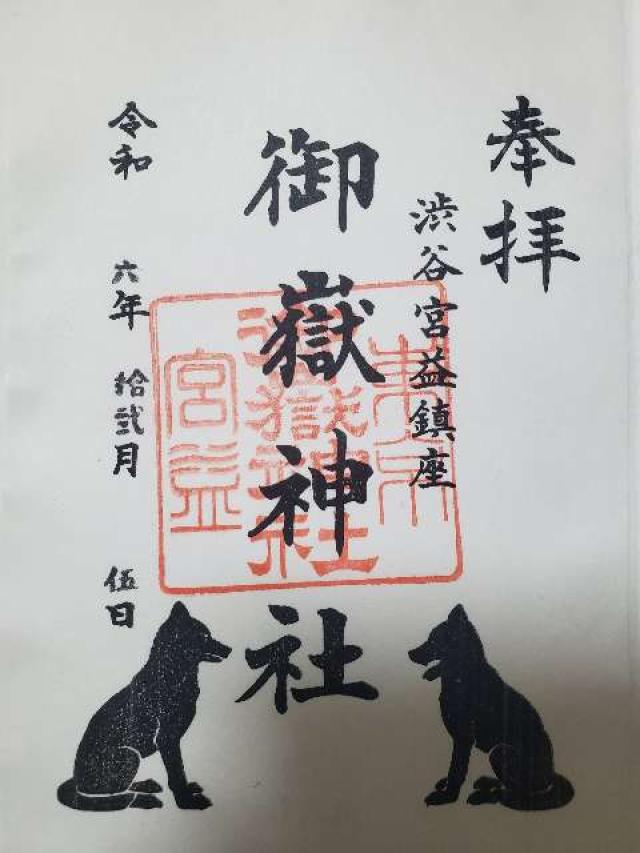 奉拝
渋谷宮益鎮座
御嶽神社
令和 六年 拾弐月 伍日
東京
御嶽神社
宮益